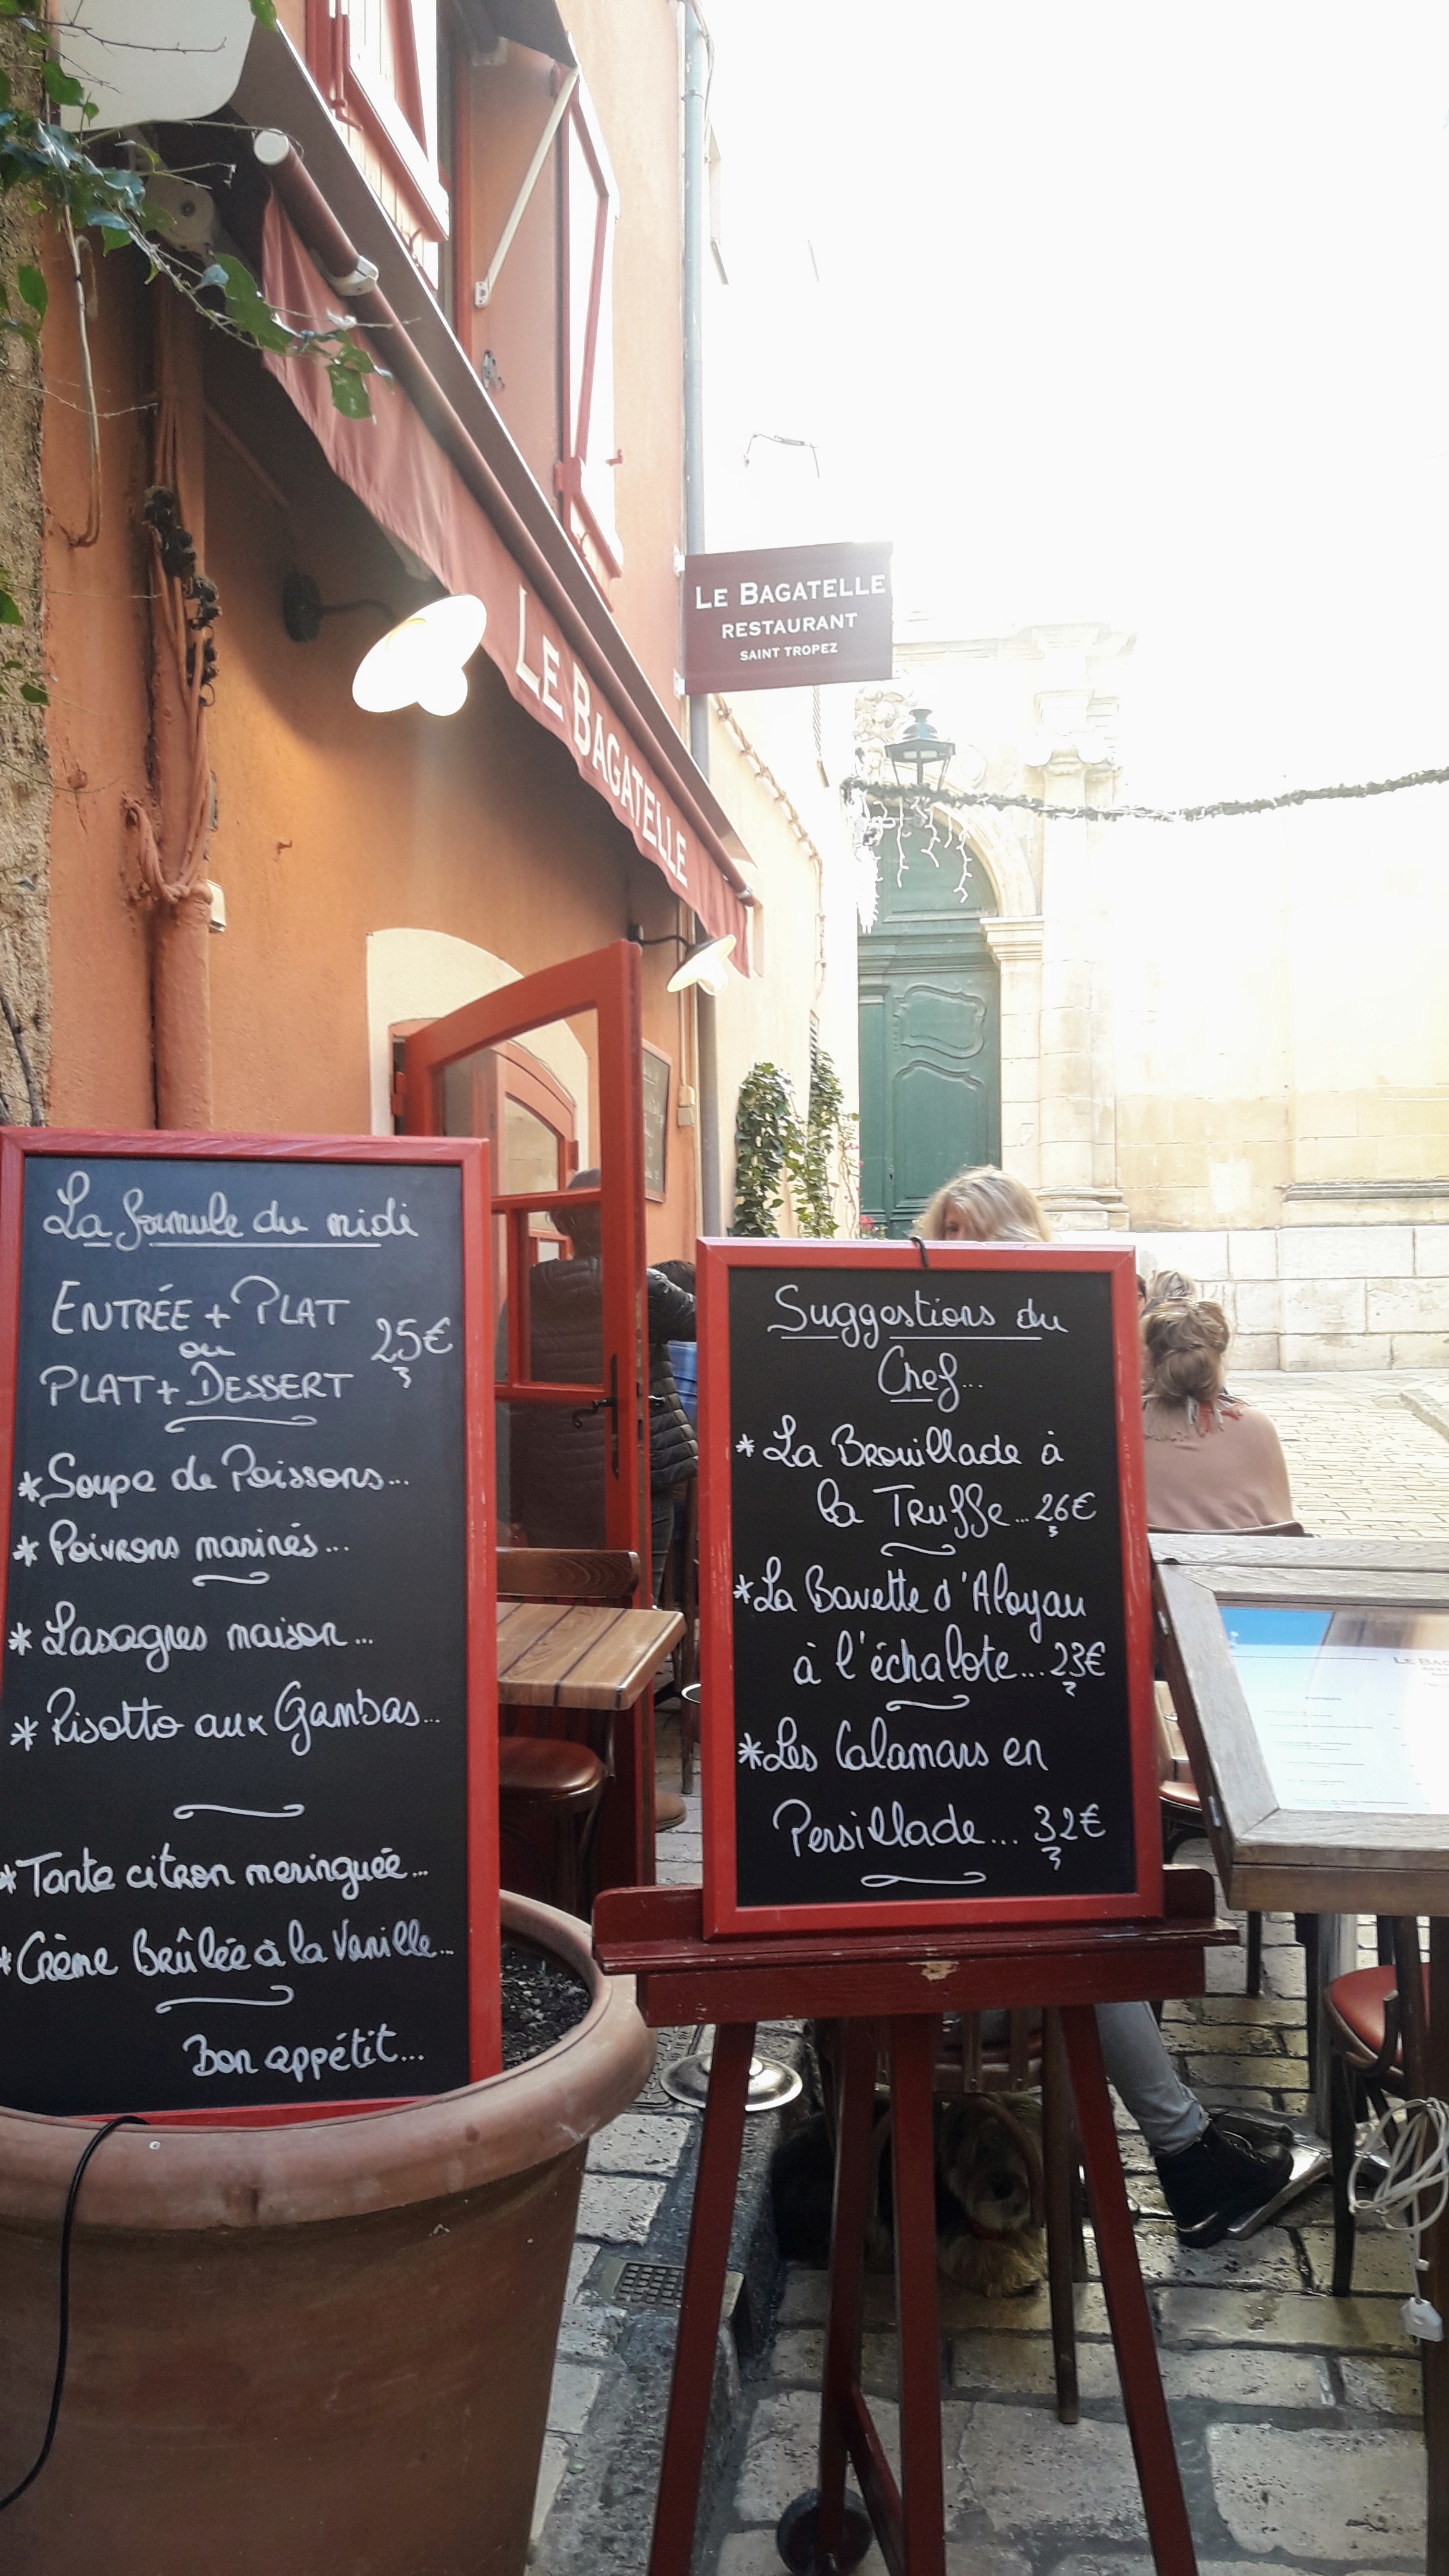 LE BAGATELLE
RESTAURANT
SAINT TROPEZ
LE BAGATELLE
La formule du midi
ENTRÉE + PLAT
ou
25€
PLAT + DESSERT
* Soupe de Poissons...
* Poivrons marinés...
* Lasagnes maison...
* Risotto aux Gambas...
* Tarte citron meringuée...
* Crème Brûlée à la Vanille...
Bon appétit...
Suggestions du
Chef...
* La Brouillade à
la Truffe... 26€
* La Bavette d'Aloyau
à l'échalote... 23€
* Les Calamars en
Persillade... 32€
LE BAG